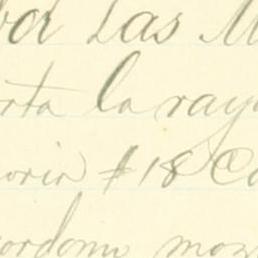 por Las M
rta la raya
oria $18 Co
ordomo mon